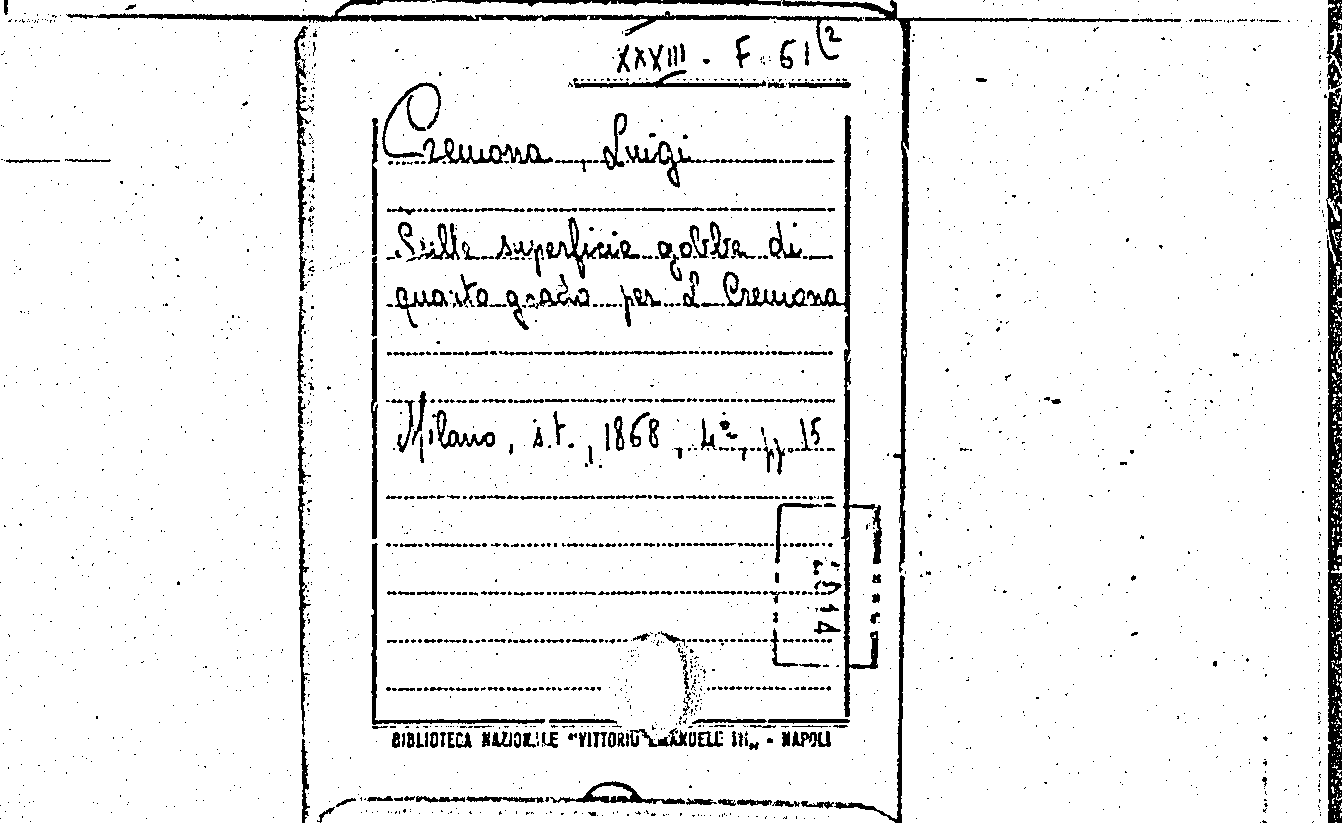 XXXIII. F 61(2
Cremona, Luigi
Sulle superficie gobbe di
quarto grado per L Cremona
Milano, s.t., 1868, 4°, pp 15
BIBLIOTECA NAZIONALE "VITTORIO EMANUELE III" - NAPOLI